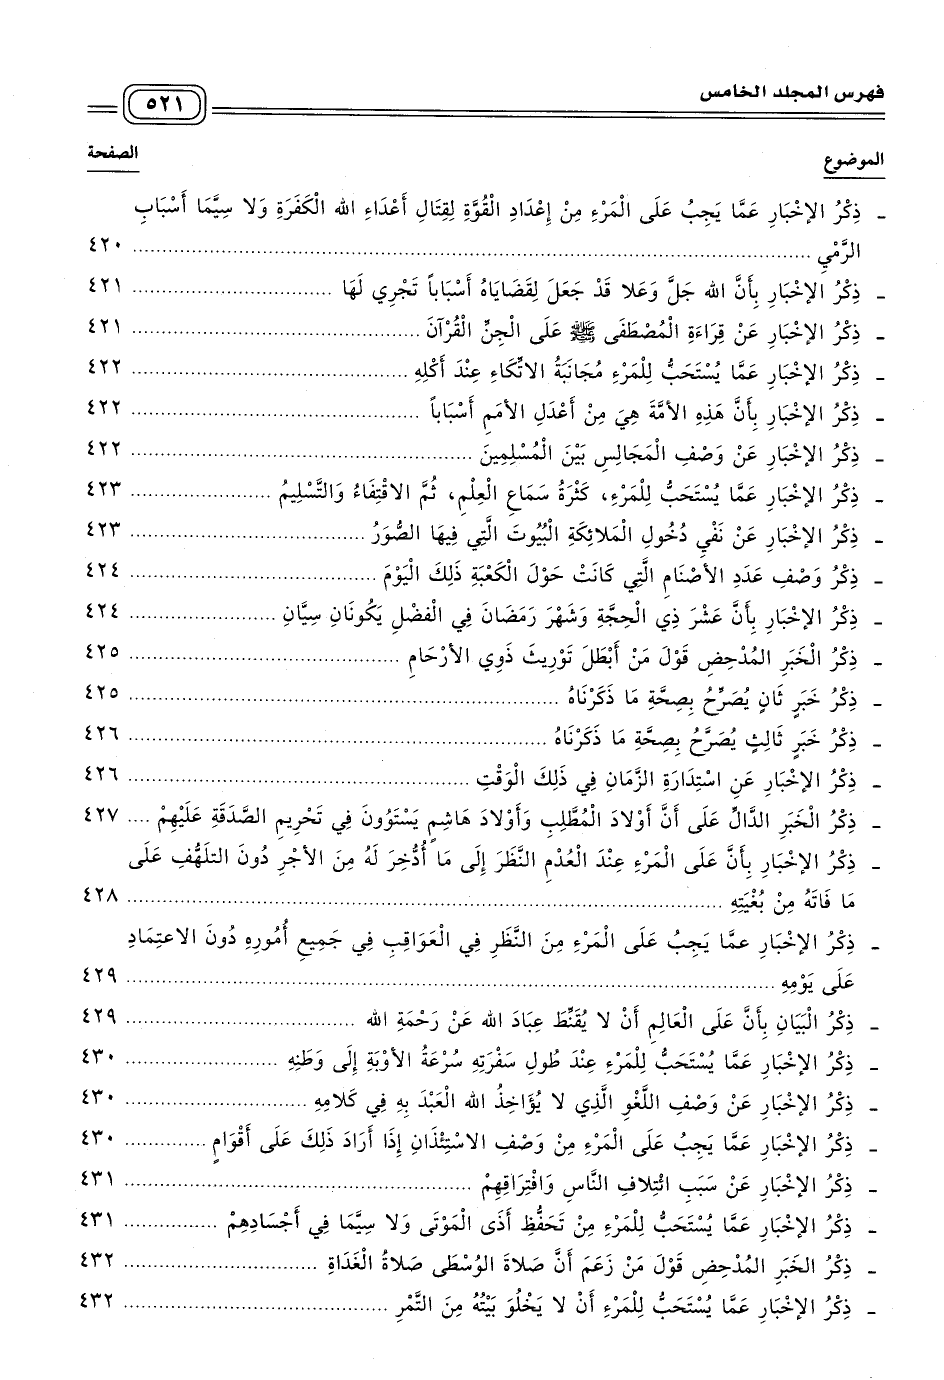 فهرس المجلد الخامس ٥٢١
الموضوع الصفحة
- ذِكْرُ الإخْبَارِ عَمَّا يَجِبُ عَلَى الْمَرْءِ مِنْ إِعْدَادِ الْقُوَّةِ لِقِتَالِ أَعْدَاءِ الله الْكَفَرَةِ وَلا سِيَّمَا أَسْبَابِ
الرَّمْيِ ........ ٤٢٠
- ذِكْرُ الإخْبَارِ بِأَنَّ الله جَلَّ وَعَلا قَدْ جَعَلَ لِقَضَايَاهُ أَسْبَاباً تَجْرِي لَهَا ........ ٤٢١
- ذِكْرُ الإخْبَارِ عَنْ قِرَاءَةِ الْمُصْطَفَى ﷺ عَلَى الْجِنِّ الْقُرْآنَ ........ ٤٢١
- ذِكْرُ الإخْبَارِ عَمَّا يُسْتَحَبُّ لِلْمَرْءِ مُجَانَبَةُ الاتِّكَاءِ عِنْدَ أَكْلِهِ ........ ٤٢٢
- ذِكْرُ الإخْبَارِ بِأَنَّ هَذِهِ الأمَّةَ هِيَ مِنْ أَعْدَلِ الأمَمِ أَسْبَاباً ........ ٤٢٢
- ذِكْرُ الإخْبَارِ عَنْ وَصْفِ الْمَجَالِسِ بَيْنَ الْمُسْلِمِينَ ........ ٤٢٢
- ذِكْرُ الإخْبَارِ عَمَّا يُسْتَحَبُّ لِلْمَرْءِ، كَثْرَةُ سَمَاعِ الْعِلْمِ، ثُمَّ الاقْتِفَاءُ وَالتَّسْلِيمُ ........ ٤٢٣
- ذِكْرُ الإخْبَارِ عَنْ نَفْيِ دُخُولِ الْمَلائِكَةِ الْبُيُوتَ الَّتِي فِيهَا الصُّوَرُ ........ ٤٢٣
- ذِكْرُ وَصْفِ عَدَدِ الأصْنَامِ الَّتِي كَانَتْ حَوْلَ الْكَعْبَةِ ذَلِكَ الْيَوْمَ ........ ٤٢٤
- ذِكْرُ الإخْبَارِ بِأَنَّ عَشْرَ ذِي الْحِجَّةِ وَشَهْرَ رَمَضَانَ فِي الْفَضْلِ يَكُونَانِ سِيَّانِ ........ ٤٢٤
- ذِكْرُ الْخَبَرِ الْمُدْحِضِ قَوْلَ مَنْ أَبْطَلَ تَوْرِيثَ ذَوِي الأرْحَامِ ........ ٤٢٥
- ذِكْرُ خَبَرٍ ثَانٍ يُصَرِّحُ بِصِحَّةِ مَا ذَكَرْنَاهُ ........ ٤٢٥
- ذِكْرُ خَبَرٍ ثَالِثٍ يُصَرِّحُ بِصِحَّةِ مَا ذَكَرْنَاهُ ........ ٤٢٦
- ذِكْرُ الإخْبَارِ عَنِ اسْتِدَارَةِ الزَّمَانِ فِي ذَلِكَ الْوَقْتِ ........ ٤٢٦
- ذِكْرُ الْخَبَرِ الدَّالِّ عَلَى أَنَّ أَوْلادَ الْمُطَّلِبِ وَأَوْلادَ هَاشِمٍ يَسْتَوُونَ فِي تَحْرِيمِ الصَّدَقَةِ عَلَيْهِمْ .... ٤٢٧
- ذِكْرُ الإخْبَارِ بِأَنَّ عَلَى الْمَرْءِ عِنْدَ الْعُدْمِ النَّظَرَ إِلَى مَا اُدُّخِرَ لَهُ مِنَ الأجْرِ دُونَ التلَهُّفِ عَلَى
مَا فَاتَهُ مِنْ بُغْيَتِهِ ........ ٤٢٨
- ذِكْرُ الإخْبَارِ عمَّا يَجِبُ عَلَى الْمَرْءِ مِنَ النَّظَرِ فِي الْعَوَاقِبِ فِي جَمِيعِ أُمُورِهِ دُونَ الاعتِمَادِ
عَلَى يَوْمِهِ ........ ٤٢٩
- ذِكْرُ الْبَيَانِ بِأَنَّ عَلَى الْعَالِمِ أَنْ لا يُقَنِّطَ عِبَادَ الله عَنْ رَحْمَةِ الله ........ ٤٢٩
- ذِكْرُ الإخْبَارِ عَمَّا يُسْتَحَبُّ لِلْمَرْءِ عِنْدَ طُولِ سَفْرَتِهِ سُرْعَةُ الأوْبَةِ إِلَى وَطَنِهِ ........ ٤٣٠
- ذِكْرُ الإخْبَارِ عَنْ وَصْفِ اللَّغْوِ الَّذِي لا يُؤَاخِذُ الله الْعَبْدَ بِهِ فِي كَلامِهِ ........ ٤٣٠
- ذِكْرُ الإخْبَارِ عَمَّا يَجِبُ عَلَى الْمَرْءِ مِنْ وَصْفِ الاسْتِئْذَانِ إِذَا أَرَادَ ذَلِكَ عَلَى أَقْوَامٍ ........ ٤٣٠
- ذِكْرُ الإخْبَارِ عَنْ سَبَبِ ائْتِلافِ النَّاسِ وَافْتِرَاقِهِمْ ........ ٤٣١
- ذِكْرُ الإخْبَارِ عَمَّا يُسْتَحَبُّ لِلْمَرْءِ مِنْ تَحَفُّظِ أَذَى الْمَوْتَى وَلا سِيَّمَا فِي أَجْسَادِهِمْ ........ ٤٣١
- ذِكْرُ الخَبَرِ الْمُدْحِضِ قَوْلَ مَنْ زَعَمَ أَنَّ صَلاةَ الوُسْطَى صَلاةُ الْغَدَاةِ ........ ٤٣٢
- ذِكْرُ الإخْبَارِ عَمَّا يُسْتَحَبُّ لِلْمَرْءِ أَنْ لا يَخْلُوَ بَيْتُهُ مِنَ التَّمْرِ ........ ٤٣٢